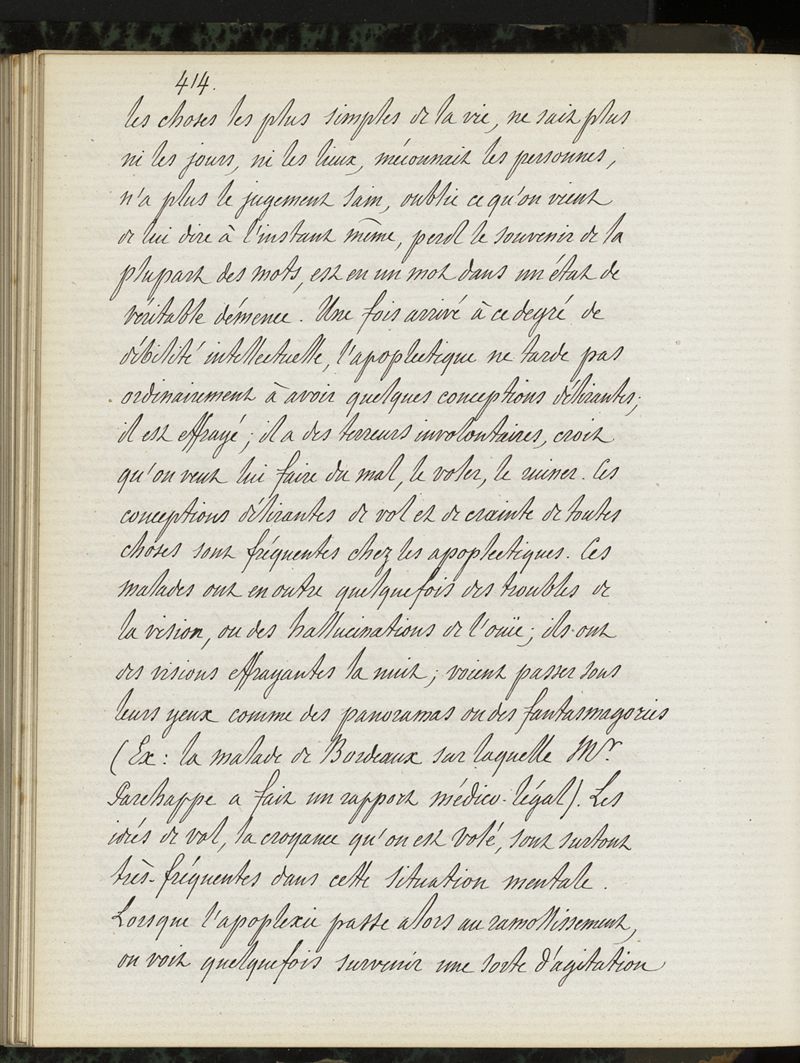 414.
les choses les plus simples de la vie, ne sait plus
ni les jours, ni les lieux, méconnait les personnes,
n'a plus le jugement sain, oublie ce qu'on vient
de lui dire à l'instant même, perd le souvenir de la
plupart des mots, est en un mot dans un état de
véritable démence. Une fois arrivé à ce degré de
débilité intellectuelle, l'apoplectique ne tarde pas
ordinairement à avoir quelques conceptions délirantes;
il est effrayé; il a des terreurs involontaires, croit
qu'on veut lui faire du mal, le voler, le ruiner. Ces
conceptions délirantes de vol et de crainte de toutes
choses sont fréquentes chez les apoplectiques. Ces
malades ont en outre quelquefois des troubles de
la vision, ou des hallucinations de l'ouïe; ils ont
des visions effrayantes la nuit; voient passer sous
leurs yeux comme des panoramas ou des fantasmagories
(Ex: la malade de Bordeaux sur laquelle Mr.
Parchappe a fait un rapport médico-légal). Les
idées de vol, la croyance qu'on est volé, sont surtout
très-fréquentes dans cette situation mentale.
Lorsque l'apoplexie passe alors au ramollissement,
on voit quelquefois survenir une sorte d'agitation